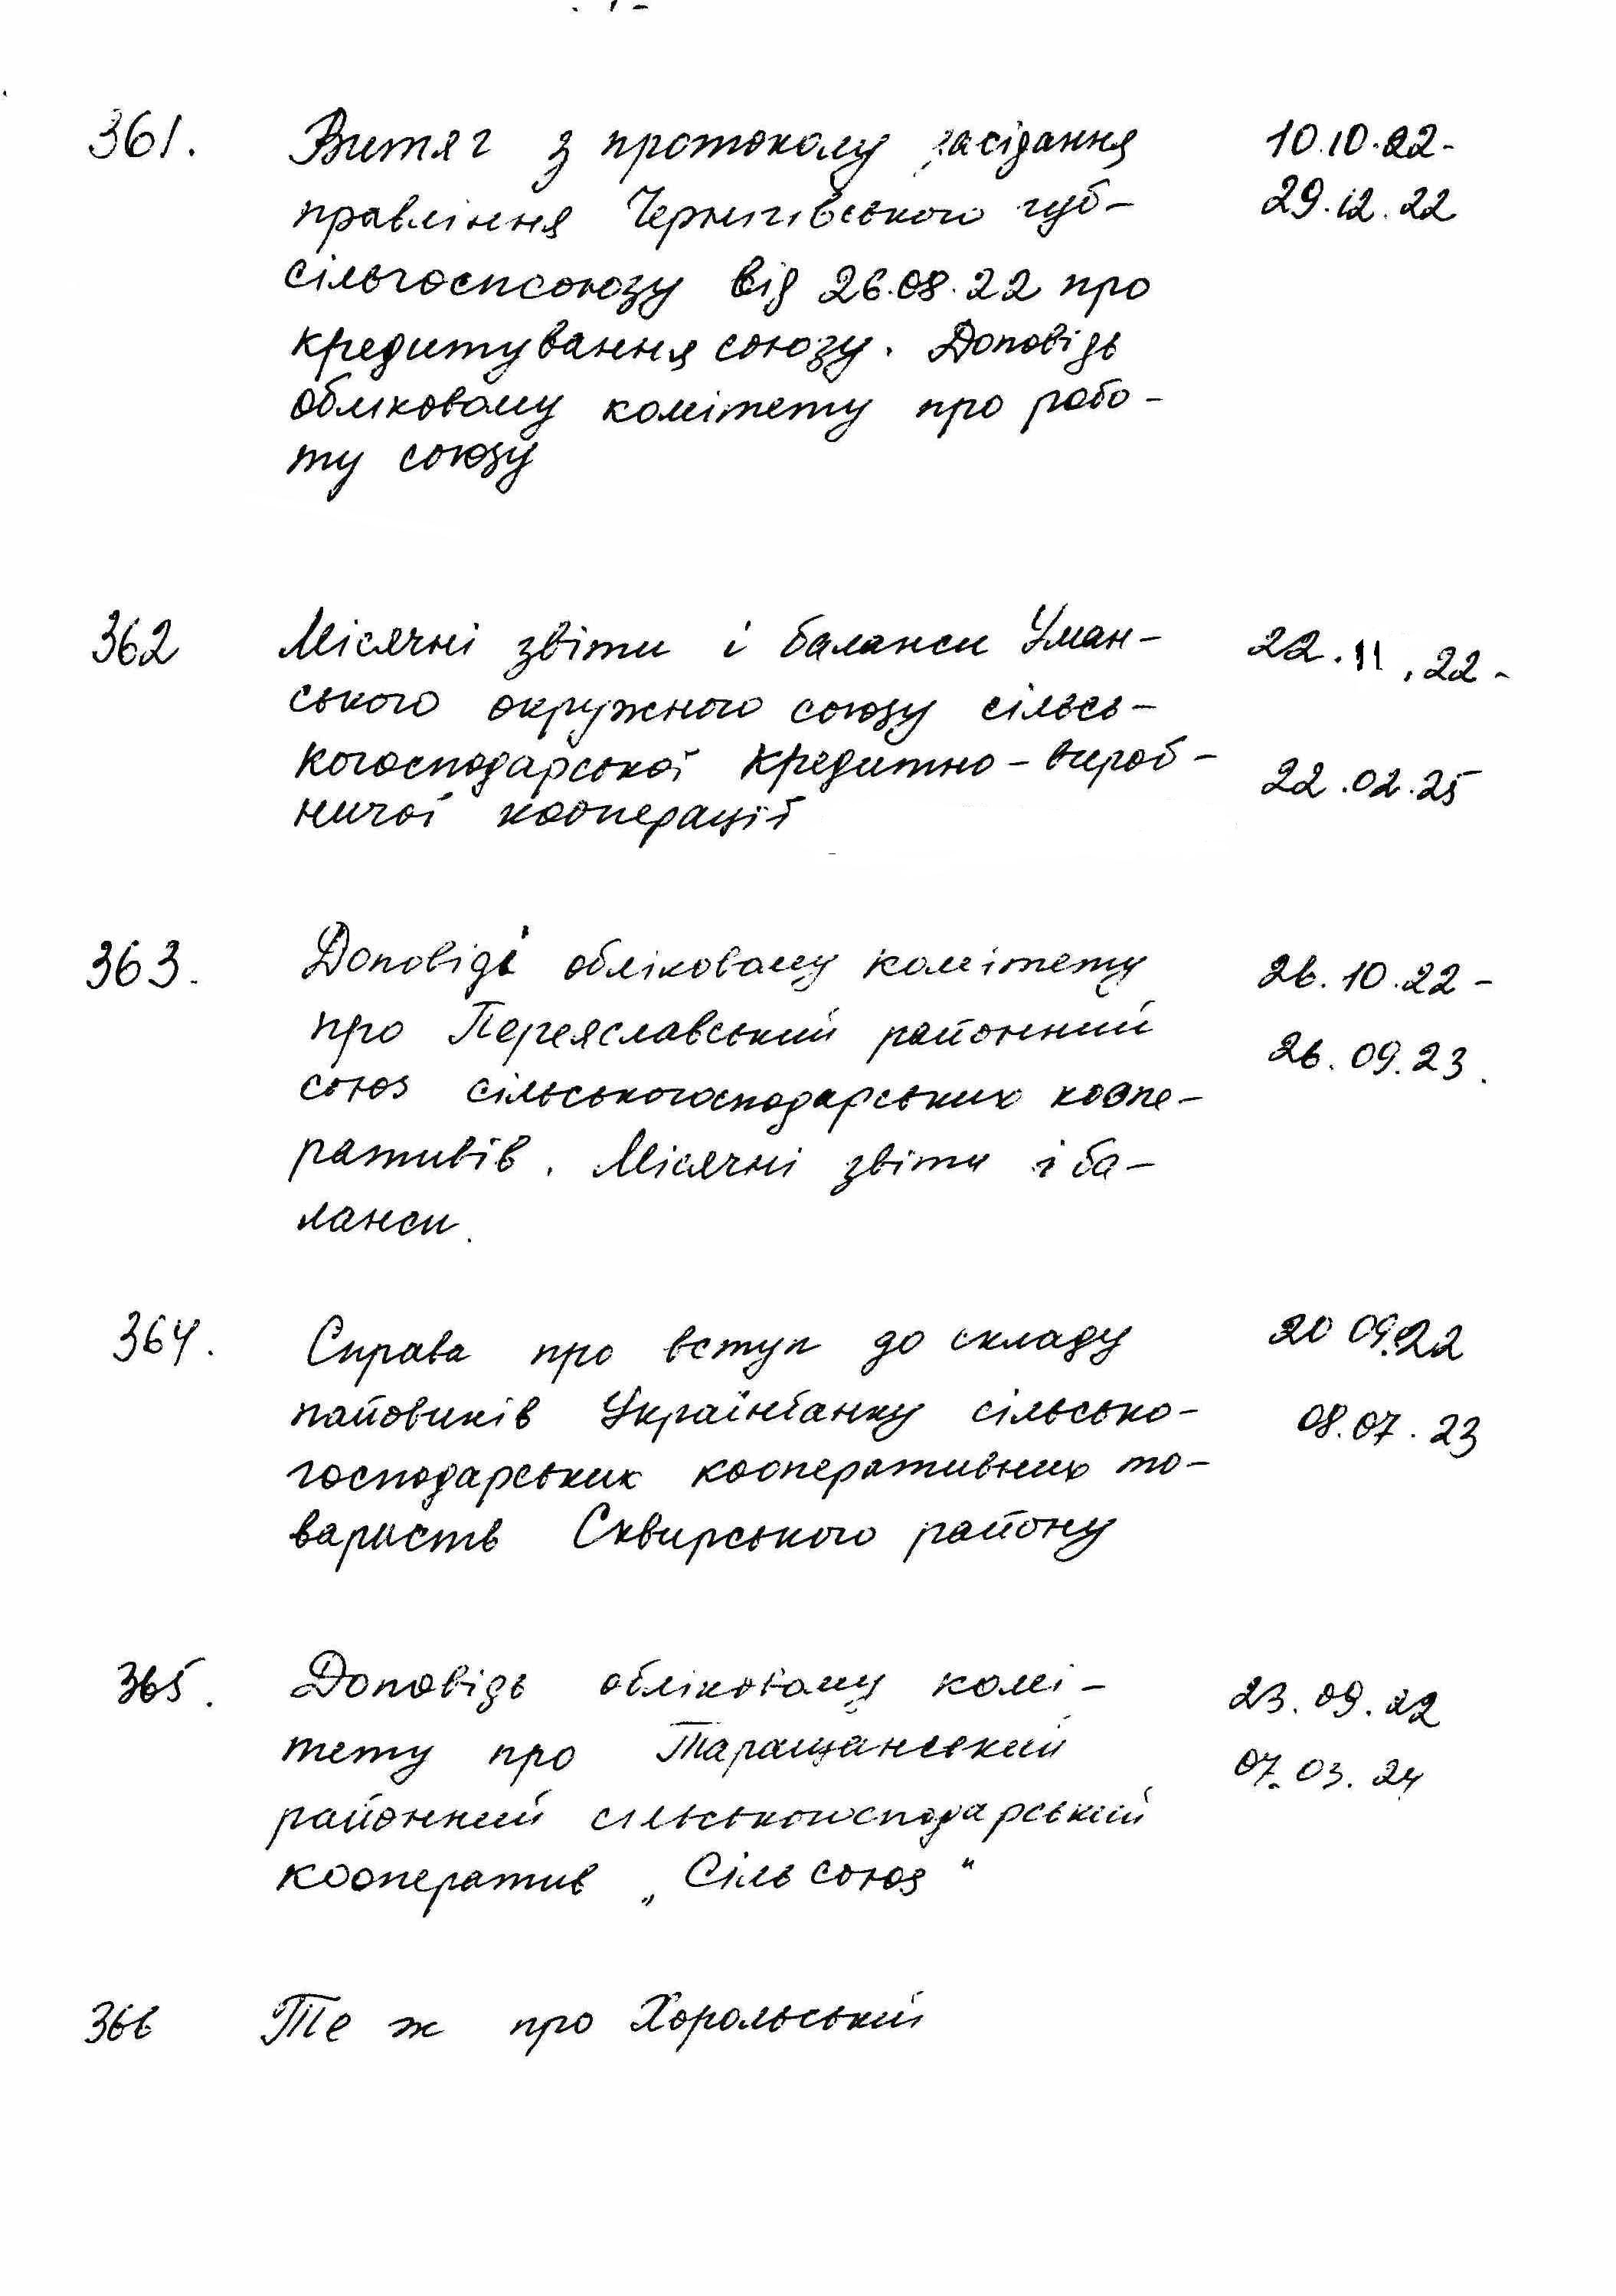 361. Витяг з протоколу засідання 10.10.22-
правління Чернігівського губ- 29.12.22
сільгоспсоюзу від 26.08.22 про
кредитування союзу. Доповідь
обліковому комітету про робо-
ту союзу
362 Місячні звіти і баланси Уман- 22.11.22-
ського окружного союзу сільсь-
когосподарської кредитно-вироб- 22.02.25
ничої кооперації
363. Доповіді обліковому комітету 26.10.22-
про Переяславський районний 26.09.23.
союз сільськогосподарських коопе-
ративів. Місячні звіти і ба-
ланси.
364. Справа про вступ до складу 20 09.22
пайовиків Українбанку сільсько- 08.07.23
господарських кооперативних то-
вариств Сквирського району
365. Доповідь обліковому комі- 23.09.22
тету про Таращанський 07.03.24
районний сільськогосподарський
кооператив „Сільсоюз"
366 Те ж про Хорольський